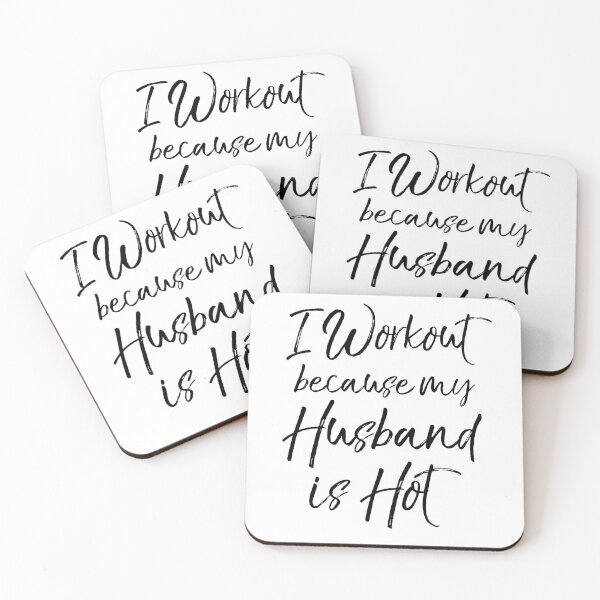 I Workout
because my
I Workout
because my
Husband
I Workout
because my
Husband
is
I Workout
because my
Husband
is Hot